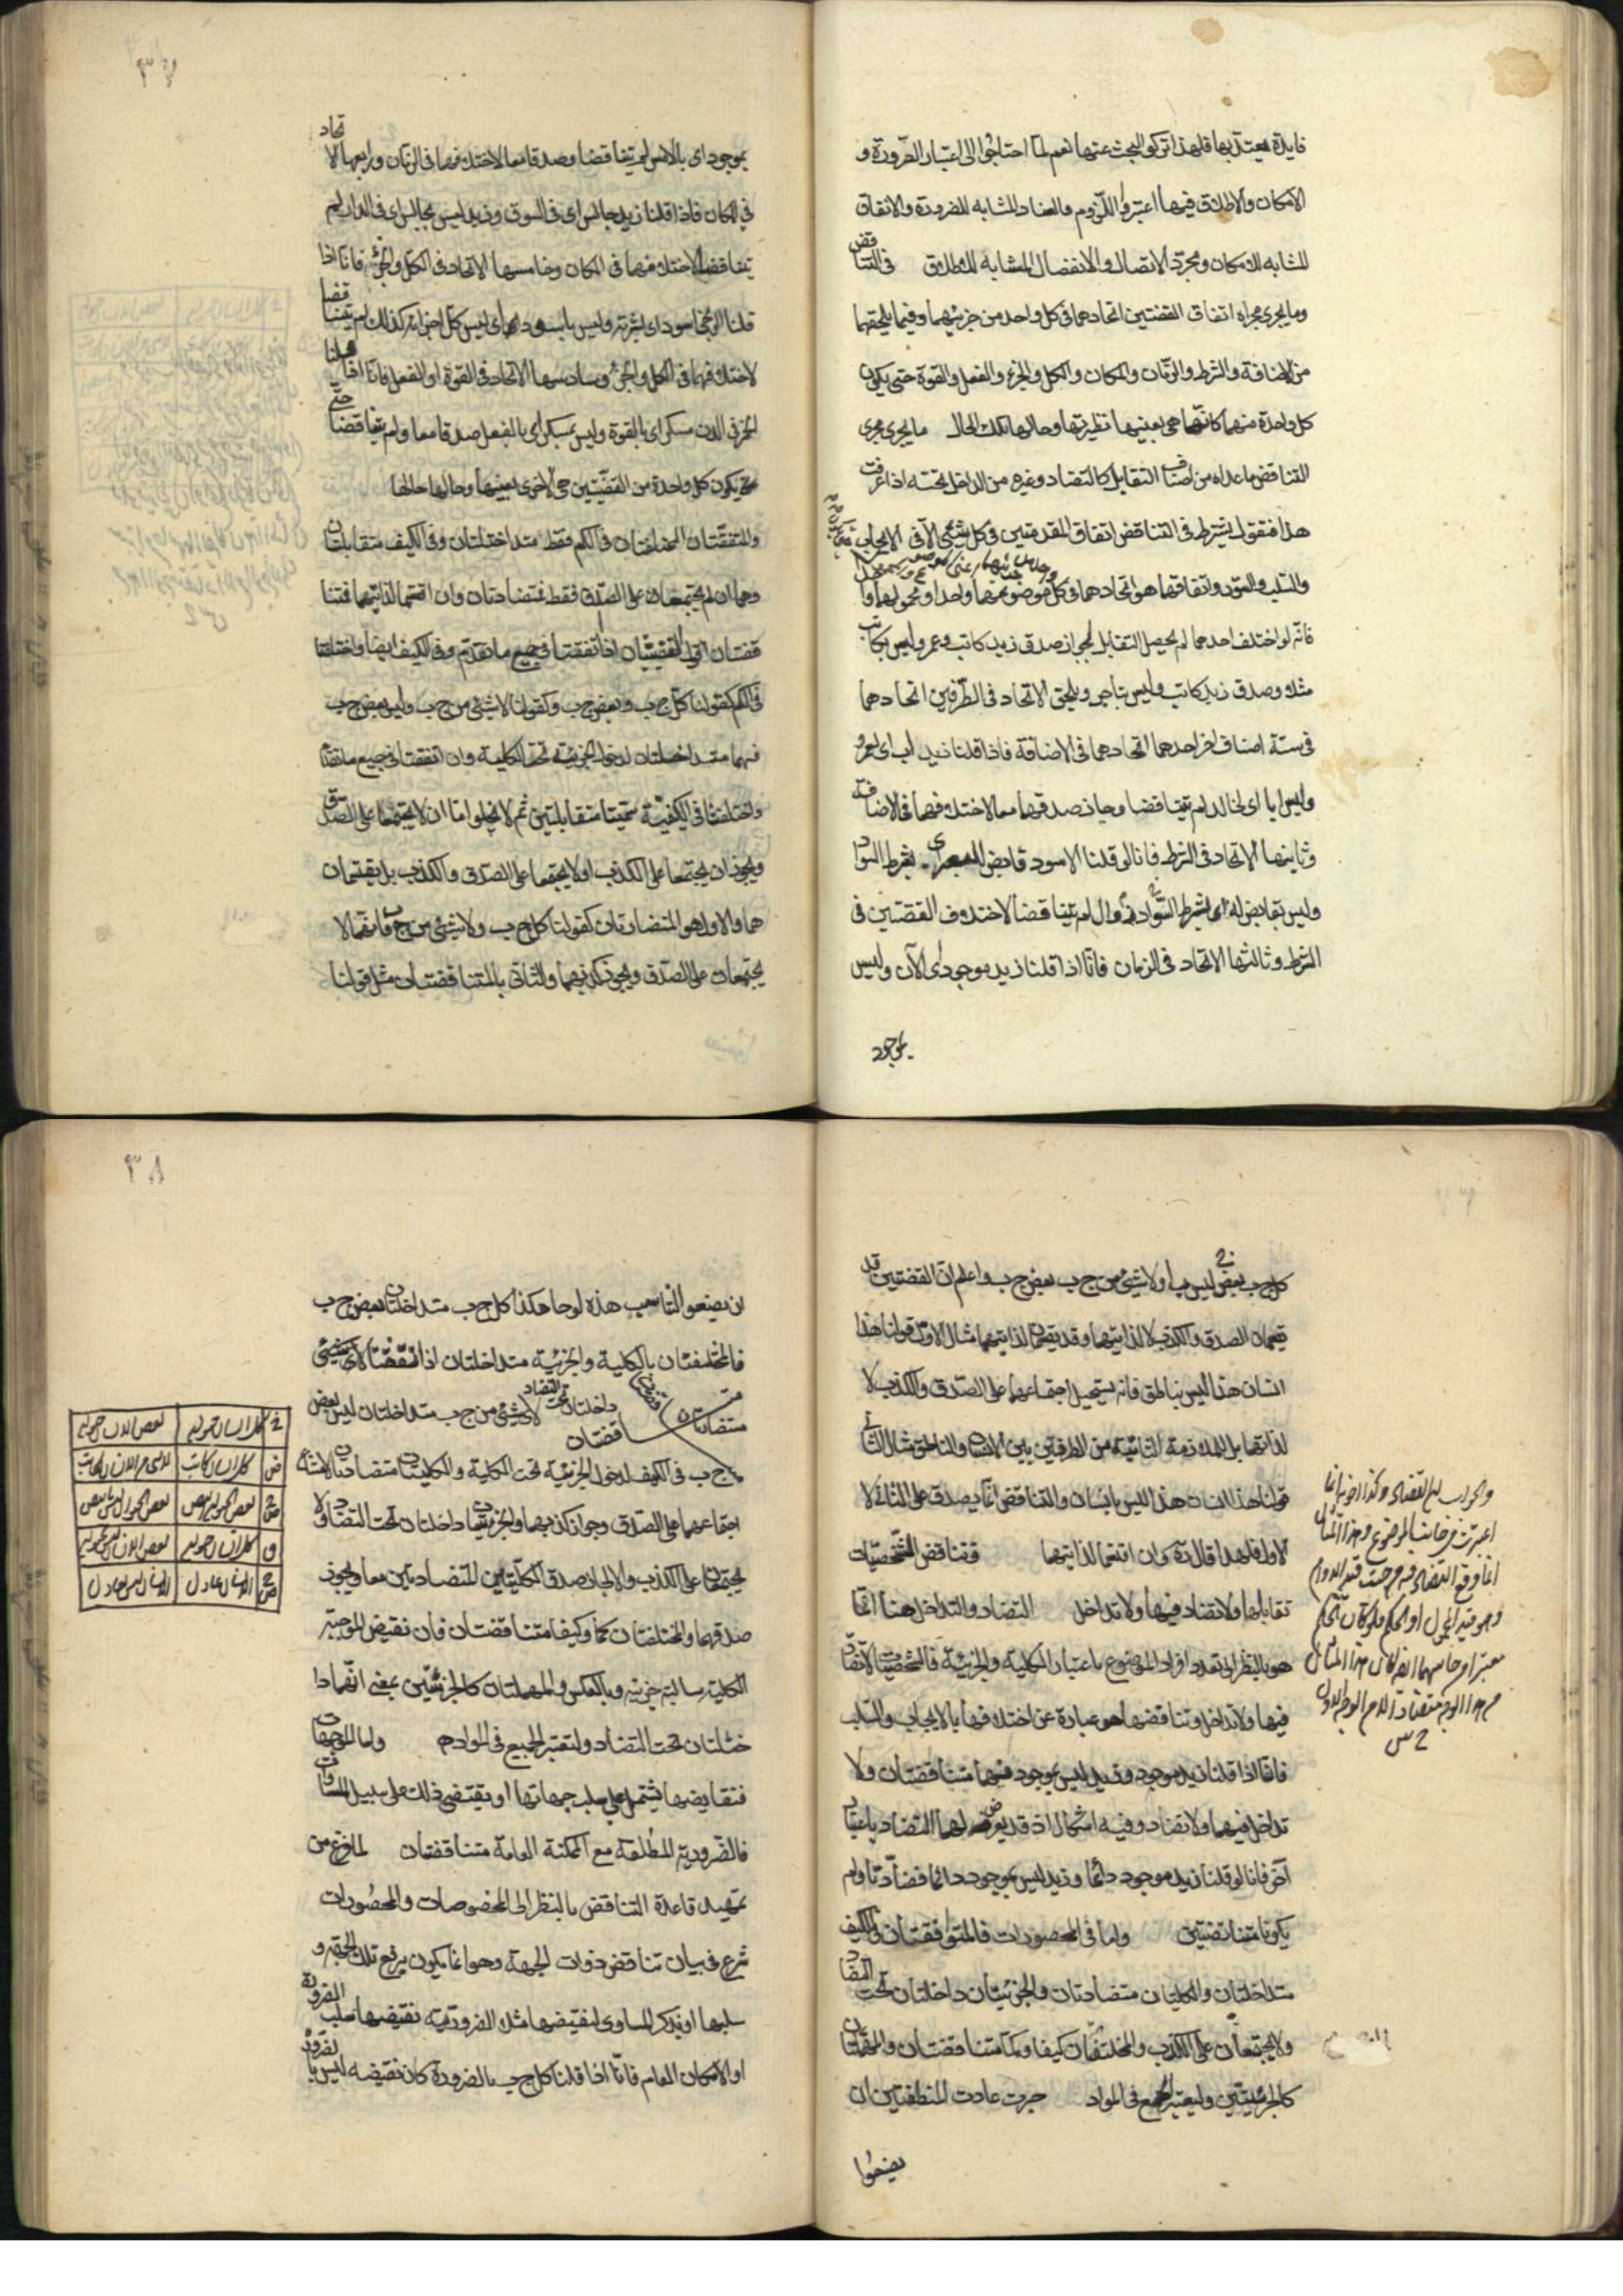 فايدة يعتد بها فلهذا تركوا البحث عنها نعم لما احتاجوا الى اعتبار الضرورة و
الامكان والاطلاق فيها اعتبروا اللزوم والعناد المشابه للضرورة والاتفاق
المشابه للامكان ومجرد الاتصال والانفصال المشابه للاطلاق في التناقض
وما يجرى مجراه اتفاق القضتين اتحادهما فى كل واحد من جزئيهما وفيما يلحقهما
من الاضافة والشرط والزمان والمكان والكل والجزء والفعل والقوة حتى يكون
كل واحدة منهما كانها هى بعينها نظيرتها وحالها تلك الحال ما يجرى مجرى
التناقض ما عداه من اصناف التقابل كالتضاد وغيره من الداخل تحته اذا عرفت
هذا فنقول يشترط فى التناقض اتفاق المقدمتين فى كل شيئ الا فى الايجاب
والسلب واتفاقهما هو اتحادهما فى كل موضوعهما واحدا ومحمولهما وا
فانه لو اختلف احدهما لم يحصل التقابل لجواز صدق زيد كاتب وعمرو ليس بكاتب
مثلا وصدق زيد كاتب وليس بتاجر ويلحق الاتحاد فى الطرفين اتحادهما
فى ستة اصناف اخر احدهما اتحادهما فى الاضافة فاذا قلنا زيد اب اى لعمرو
وليس ابا اى لخالد لم تتناقضا وجاز صدقهما معا لاختلافهما فى الاضافة
وثانيتها الاتحاد فى الشرط فانا لو قلنا الاسود قابض للبصر اى بشرط السواد
وليس بقابض له اى بشرط السواد زوال لم يتناقضا لاختلاف القضتين فى
الشرط وثالثتها الاتحاد فى الزمان فانا اذا قلنا زيد موجود اى الآن وليس
بموجود
٣٧
بموجود اى بالامس لم يتناقضا وصدقا معا لاختلافهما فى الزمان ورابعها الاتحاد
فى المكان فاذا قلنا زيد جالس اى فى السوق وزيد ليس بجالس اى فى الدار لم
يتناقضا لاختلافهما فى المكان وخامسها الاتحاد فى الكل والجزئ فانا اذا
قلنا الزنجى اسود اى بشرته وليس باسود اى ليس كل اجزائه كذلك لم يتناقضا
لاختلافهما فى الكل والجزئ وسادسها الاتحاد فى القوة او الفعل فانا اذا قلنا
الخمر فى الدن مسكر اى بالقوة وليس بمسكر اى بالفعل صدقا معا ولم يتناقضا حتى
يكون كل واحدة من القضيتين هى الاخرى بعينها وحالها حالها
والمتفقتان المختلفتان فى الكم فقط متداخلتان وفى الكيف متقابلتان
وهما ان لم يجتمعا على الصدق فقط فمتضادتان وان اقتسما لذاتيهما فمتنا
قضتان اقول القضيتان اذا اتفقتا فى جميع ما تقدم وفى الكيف ايضا واختلفتا
فى الكم كقولنا كل ج ب وبعض ج ب وكقولنا لا شيئ من ج ب وليس بعض ج ب
فهما متداخلتان لدخول الجزئية تحت الكلية وان اتفقتا فى جميع ما تقدم
واختلفتا فى الكيفية سميتا متقابلتين ثم لا يخلوا اما ان لا يجتمعا على الصدق
ويجوز ان يجتمعا على الكذب او لا يجتمعا على الصدق والكذب بل يقتسمان
هما والاول هو المتضادتان كقولنا كل ج ب ولا شيئ من ج ب فانهما لا
يجتمعان على الصدق ويجوز كذبهما والثانى بالمتناقضتان مثل قولنا
كل ج ب بعض ج ليس ب او لا شيئ من ج ب بعض ج ب واعلم ان القضتين قد
تقتسمان الصدق والكذب لا لذاتيهما وقد يقتسمان لذاتيهما مثال الاول قولنا هذا
انسان هذا ليس بناطق فانه يستحيل اجتماعهما على الصدق والكذب لا
لذاتهما بل للملازمة الثانية من الطرفين بين الانسان والناطق مثال الثانى
قولنا هذا انسان هذا ليس بانسان والتناقض انما يصدق على الثانى لا
الاول فلهذا قال وان اقتسما لذاتيهما فتناقض الشخصيات
تقابلها ولا تضاد فيها ولا تداخل التضاد والتداخل هنا انما
هو بالنظر الى تعدد افراد الموضوع باعتبار الكلية والجزئية فالشخصيات لا تضاد
فيها ولا تداخل وتناقضها هو عبارة عن اختلافهما بالايجاب والسلب
فانا اذا قلنا زيد موجود وزيد ليس بموجود فهما متناقضتان ولا
تداخل فيهما ولا تضاد وفيه اشكال اذ قد يعرض لهما التضاد باعتبار
آخر فانا لو قلنا زيد موجود دائما وزيد ليس بموجود دائما فضادتا ولم
يكونا متناقضتين واما فى المحصورات فالمتوافقتان فى الكيف
متداخلتان والكليتان متضادتان والجزئيتان داخلتان تحت التضاد
ولا يجتمعان على الكذب والمختلفتان كيفا وكما متناقضتان والمهملتان
كالجزئيتين وليعتبر الجميع فى المواد جرت عادت المنطقيين ان
يضعوا
٣٨
ان يضعوا للتناسب هذه لوحا هكذا كل ج ب متداخلتان بعض ج ب
فالمختلفتان بالكلية والجزئية متداخلتان اذا اتفقتا لا شيئ
متضادتان داخلتان تحت التضاد لا شيئ من ج ب متداخلتان ليس بعض
قضتان
ج ب فى الكيف لدخول الجزئية تحت الكلية والكليتان متضادتان لامتناع
اجتماعهما على الصدق وجواز كذبهما والجزئيتان داخلتان تحت التضاد ولا
يجتمعان على الكذب والا لجاز صدق الكليتين المتضادتين معا ويجوز
صدقهما والمختلفتان كما وكيفا متناقضتان فان نقيض الموجبة
الكلية سالبة جزئية وبالعكس والمهملتان كالجزئيتين بمعنى انهما دا
خلتان تحت التضاد ولتعتبر الجميع فى المواد واما الموجهات
فتقايضها يشتمل على سلب جهاتها او يقتضى ذلك على سبيل المساوات
فالضرورية المطلقة مع الممكنة العامة متناقضتان لما فرغ من
تمهيد قاعدة التناقض بالنظر الى المخصوصات والمحصورات
شرع فى بيان تناقض ذوات الجهة وهو انما يكون برفع تلك الجهة و
سلبها او بذكر المساوى لنقيضها مثلا الضرورية نقيضها سلب الضرورة
او الامكان العام فانا اذا قلنا كل ج ب بالضرورة كان نقيضه ليس بالضرورة